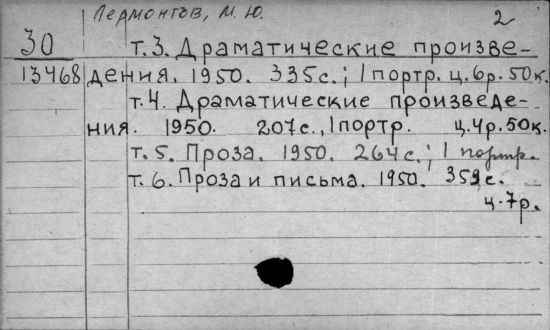 Лермонтов, М. Ю.
2
30 т.3. Драматические произве-
13468 дения. 1950. 335с.; 1 портр. ц.6р.50к.
т.4. Драматические произведе-
ния. 1950. 207с., 1портр. ц.4р.50к.
т.5. Проза. 1950. 264с.; 1 портр.
т.6. Проза и письма. 1950. 359с.
ц.7р.